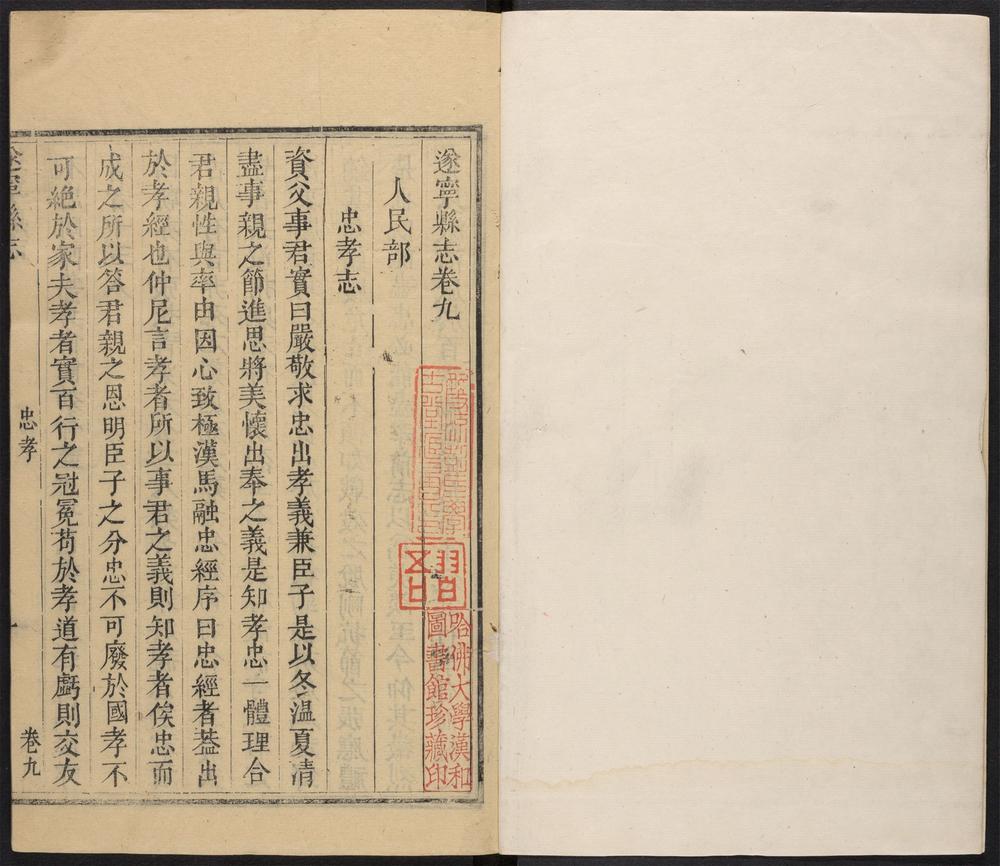 遂寧縣志卷九
人民部
忠孝志
資父事君實曰嚴敬求忠出孝義兼臣子是以冬溫夏凊
盡事親之節進思將美懷出奉之義是知孝忠一體理合
君親性與率由因心致極漢馬融忠經序曰忠經者葢出
於孝經也仲尼言孝者所以事君之義則知孝者俟忠而
成之所以答君親之恩明臣子之分忠不可廢於國孝不
可絕於家夫孝者實百行之冠冕苟於孝道有虧則交友
遂寧縣志
忠孝
一
卷九
哈佛大學漢和
圖書館珍藏印